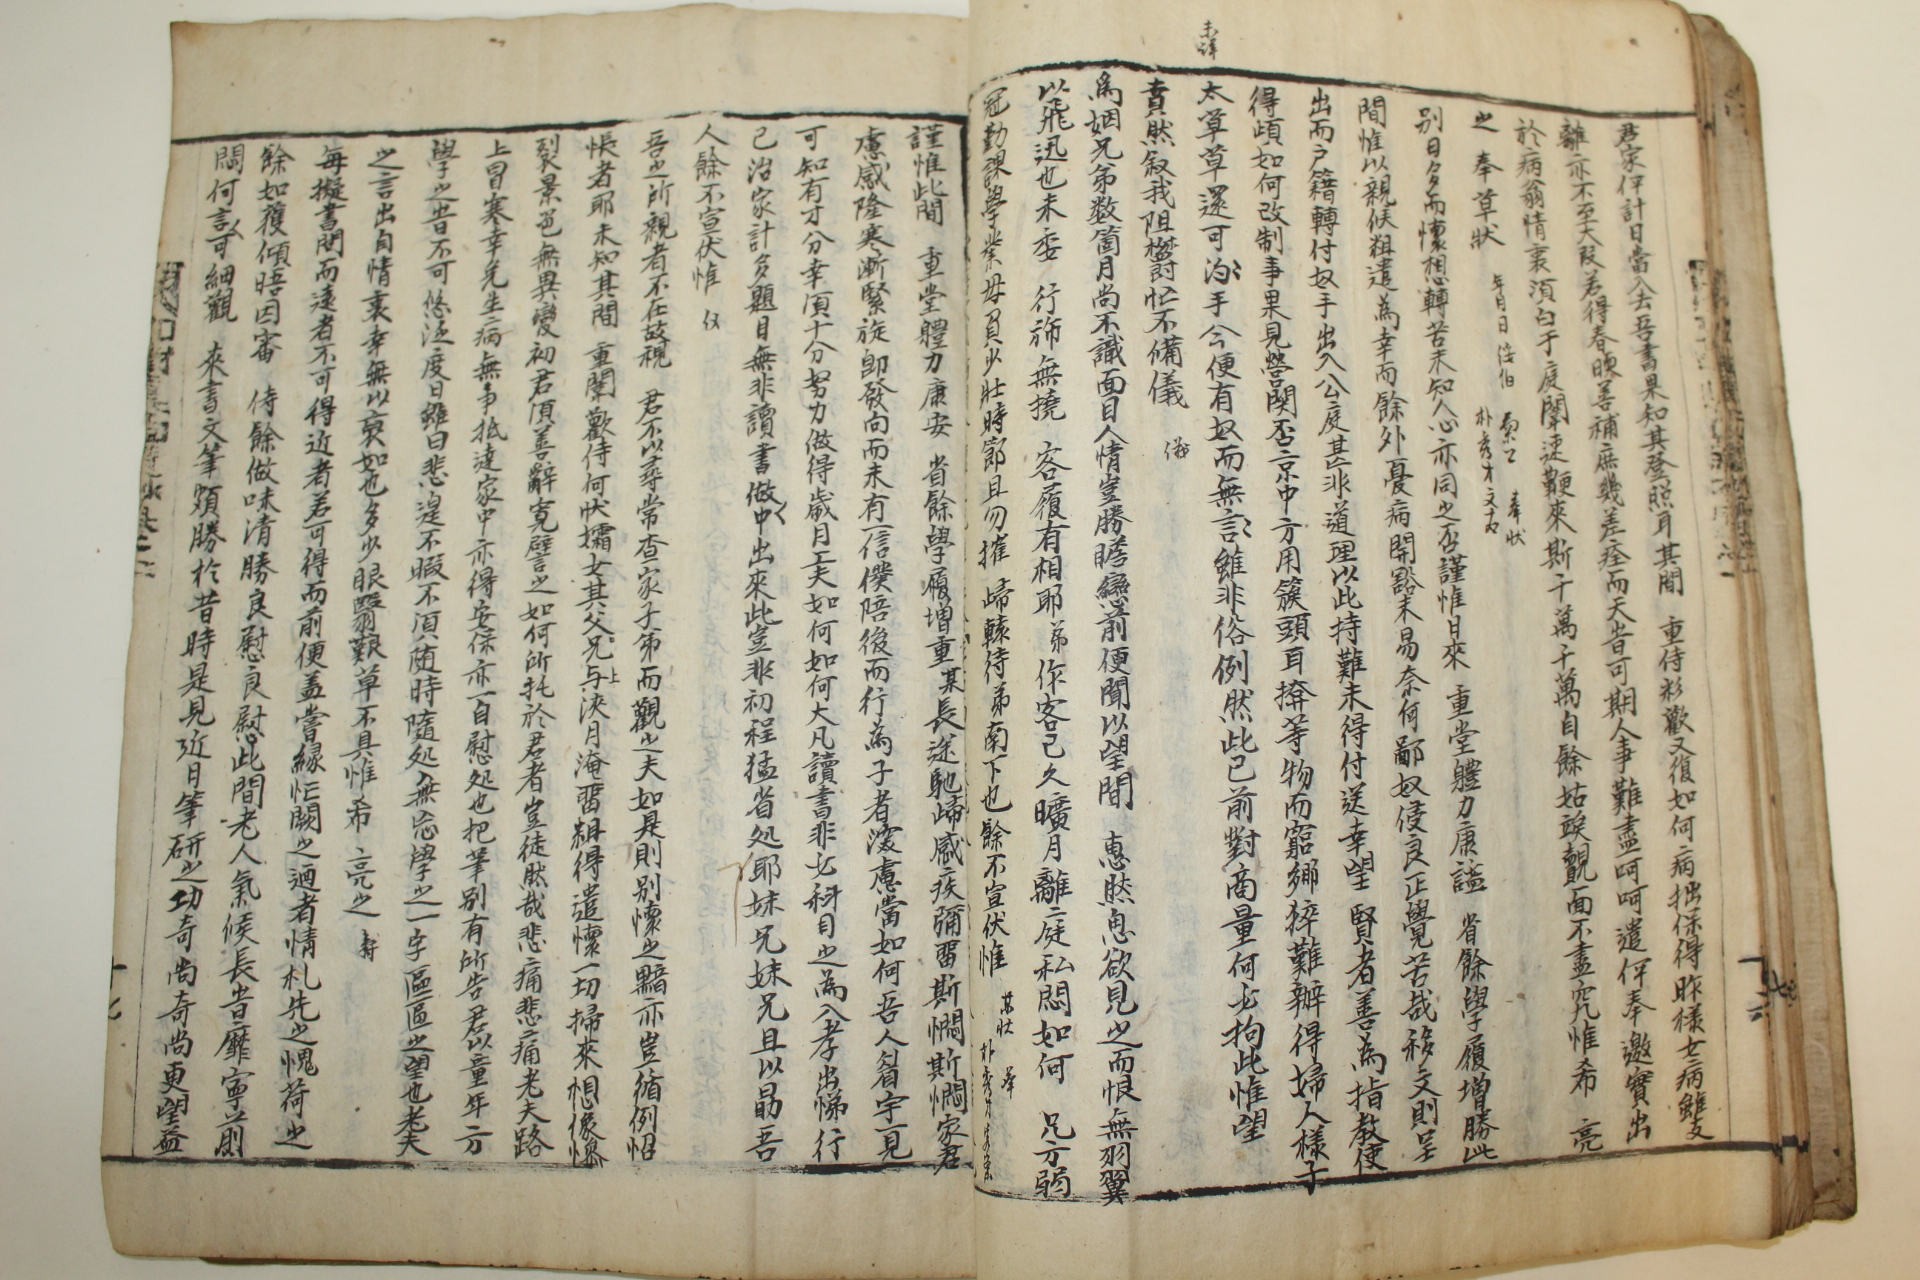 君家伻計日當入去吾書果知其登照耳其間 重侍彩歡又復如何病拙保得昨樣女病雖支
離亦不至大段若得春暖善補庶幾差痊而天昔可期人事難盡呵呵遣伻奉邀實出
於病翁情衷須白于庭闈速鞭來斯千萬千萬自餘姑竢覿面不盡究惟希 亮
之 奉草狀 年月日 奉狀
別日多而懷想轉苦未知人心亦同之否謹惟日來 重堂體力康謐 省餘學履增勝此
間惟以親候粗遣為幸而餘外憂病開豁未易奈何鄙奴侵良正覺苦哉移文則呈
出而戶籍轉付奴手出入公庭甚非道理以此持難未得付送幸望 賢者善為指教使
得頉如何改制事果見營關否京中方用簇頭耳揜等物而窮鄉猝難辦得婦人樣子
太草草還可泃泃手今便有奴而無言言雖非俗例然此已前對商量何必拘此惟望
賁然叙我阻欝忙不備儀
為姻兄弟数箇月尚不識面目人情豈勝瞻戀前便聞以望間 惠然思欲見之而恨無羽翼
以飛迅也未委 行旆無撓 客履有相耶弟作客已久曠月離庭私悶如何 兄方弱
冠勤課學業毋負少壯時節且勿摧 歸轅待弟南下也餘不宣伏惟
謹惟此間 重堂體力康安 省餘學履增重某長途馳歸感疾彌留斯憫斯憫家君
慮感隆寒漸緊旋即發向而未有一信儻陪後而行為子者深慮當如何吾人眉宇一見
可知有才分幸須十分努力做得歲月工夫如何如何大凡讀書非必科目之為入孝出悌行
己治家計多題目無非讀書做中出來此豈非初程猛省処耶妹兄妹兄且以勗吾
人餘不宣伏惟
吾之所親者不在故親 君不以尋常査家子弟而觀之夫如是則別懷之黯亦豈循例怊
悵者耶未知其間 重闈歡侍何狀孀女其父兄与浹月淹留粗得遣懷一切掃來想像慘
裂景色無異變初君須善辭寬譬之如何所托於君者豈徒然哉悲痛悲痛老夫路
上冒寒幸免生病無事抵達家中亦得安保亦一自慰処也把筆別有所告君以童年方
學之昔不可悠泛度日雖曰悲遑不暇不須随時隨処無忘學之一字區區之望也老夫
之言出自情衷幸無以衰如也多少眼翳艱草不具惟希 亮之
每擬書問而遠者不可得近者若可得而前便盖嘗緣忙闕之迺者情札先之愧荷之
餘如獲傾晤因審 侍餘做味清勝良慰良慰此間老人氣候長昔靡寧一則
悶何言可細觀 來書文筆頗勝於昔時是見近日筆研之功奇尚奇尚更望益